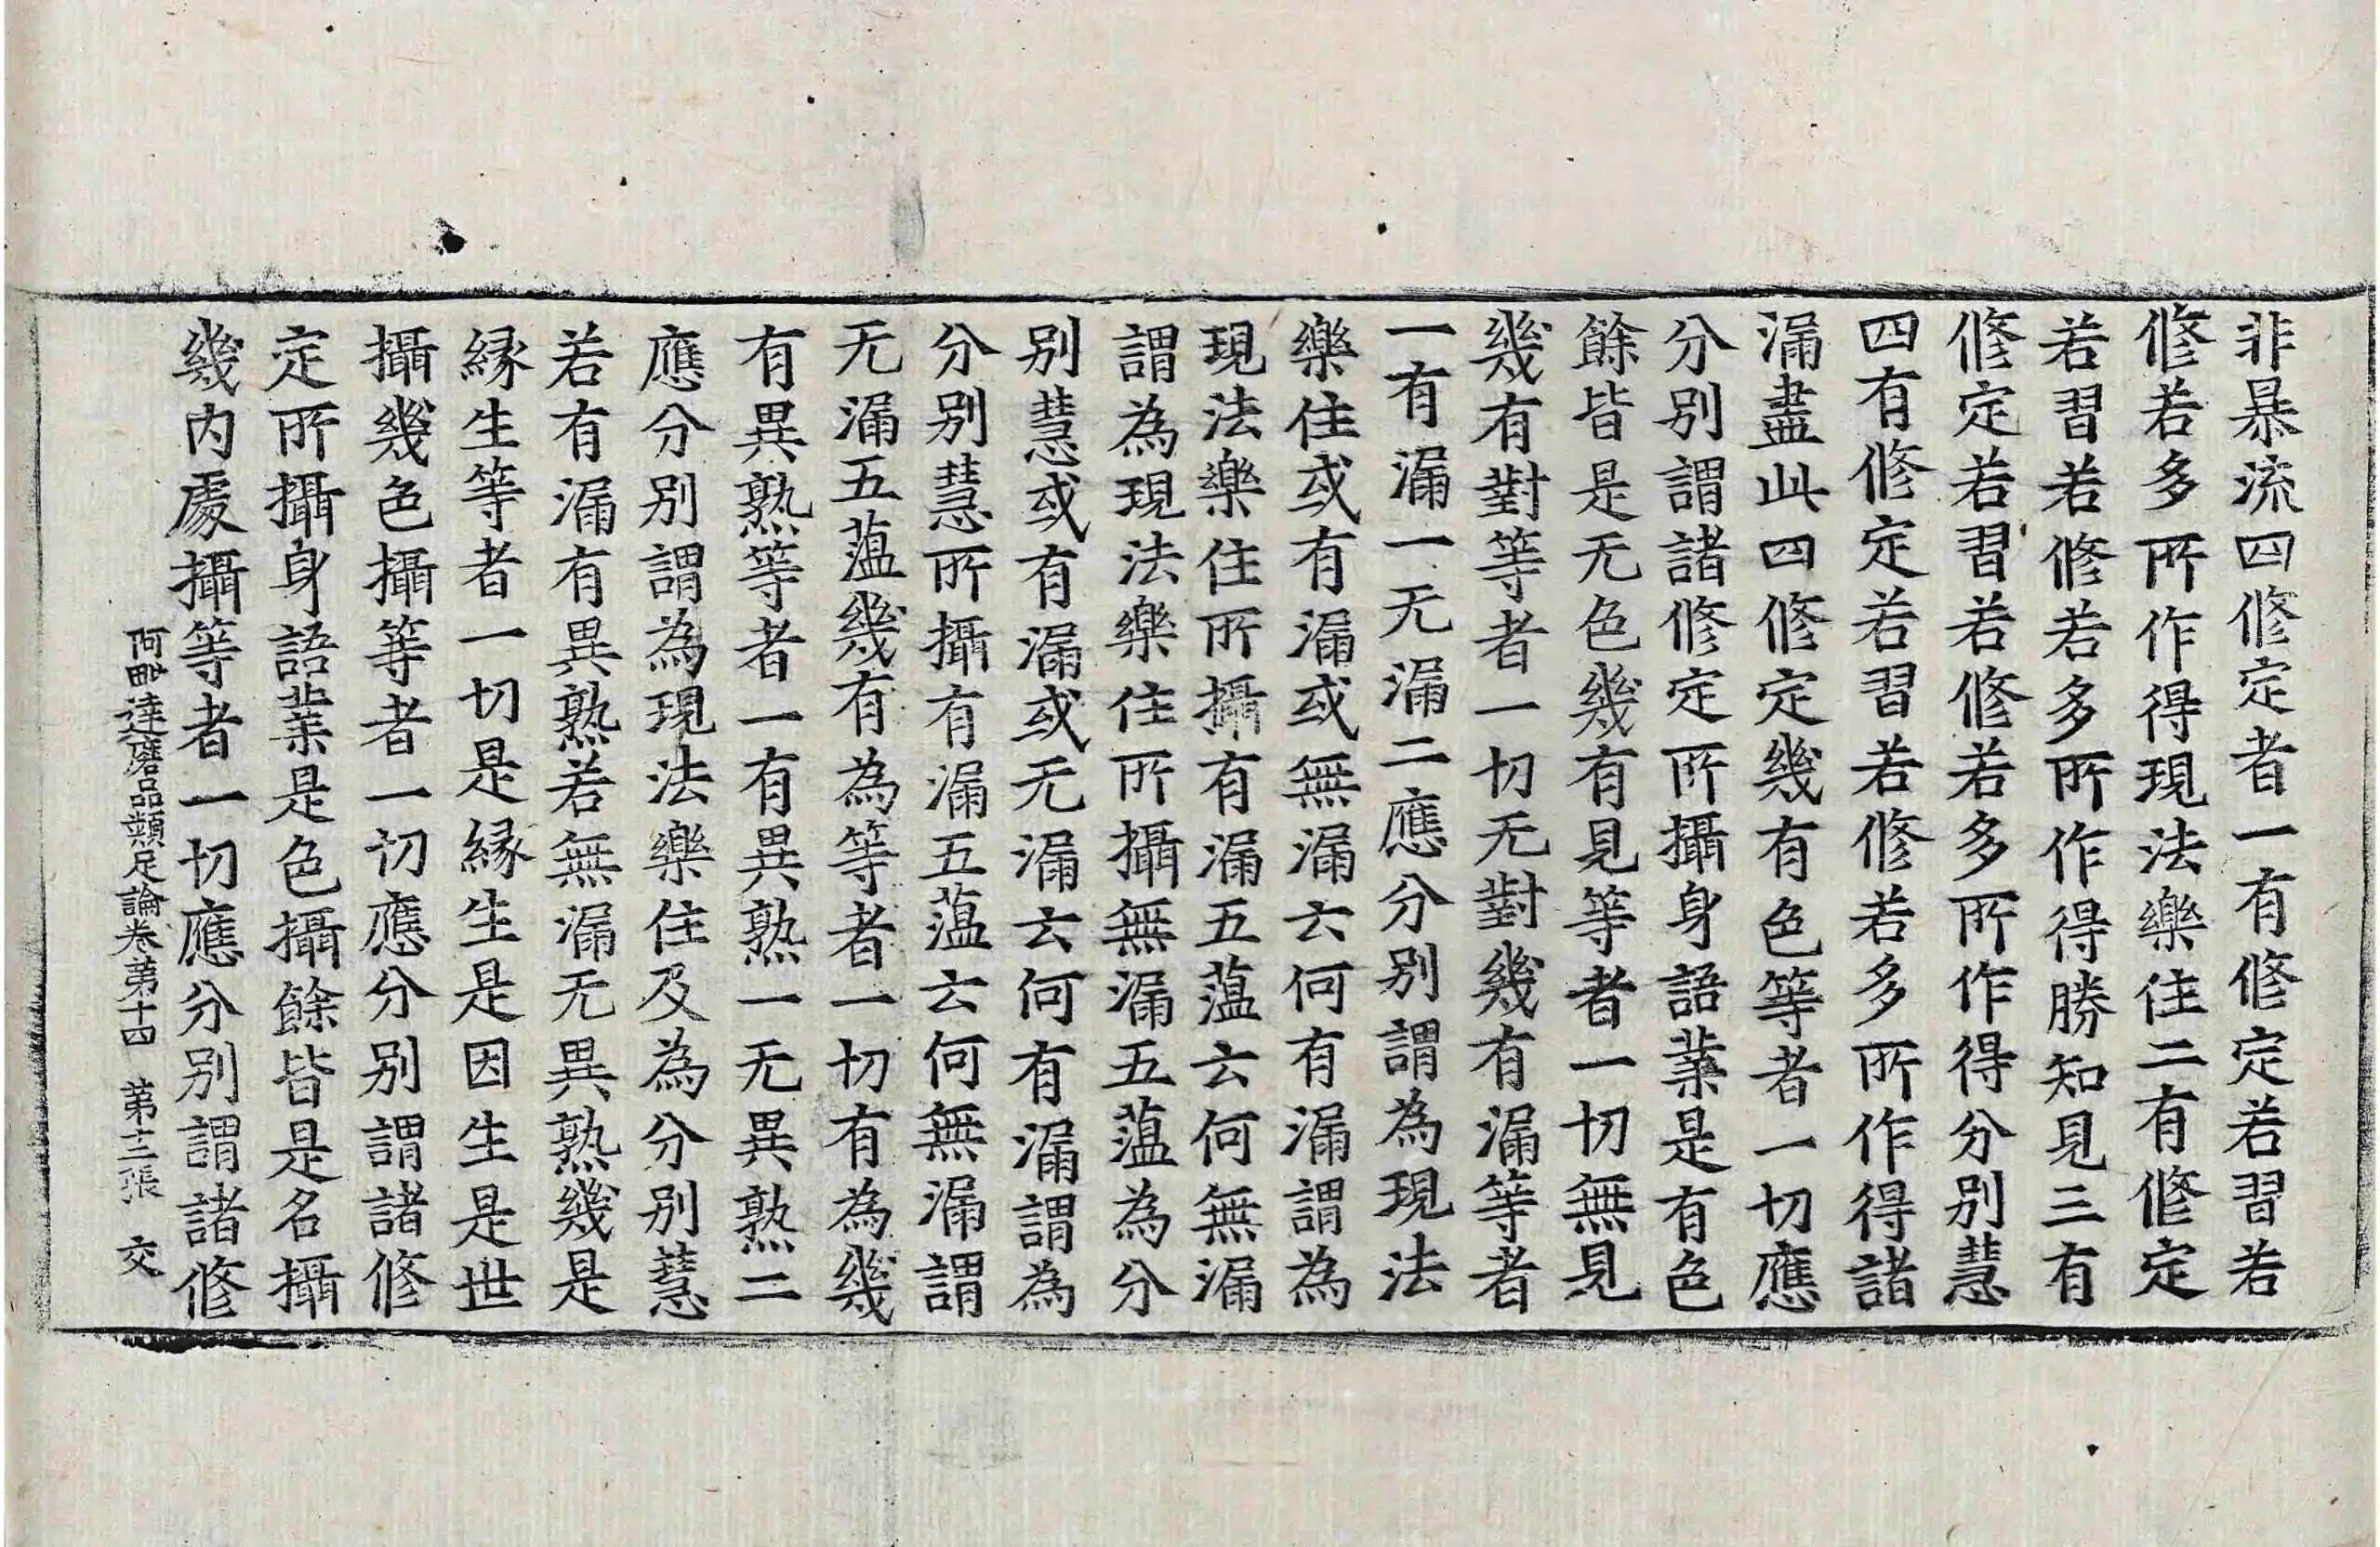 非暴流四修定者一有修定若習若
修若多所作得現法樂住二有修定
若習若修若多所作得勝知見三有
修定若習若修若多所作得分別慧
四有修定若習若修若多所作得諸
漏盡此四修定幾有色等者一切應
分別謂諸修定所攝身語業是有色
餘皆是无色幾有見等者一切無見
幾有對等者一切无對幾有漏等者
一有漏一无漏二應分別謂為現法
樂住或有漏或無漏云何有漏謂為
現法樂住所攝有漏五蕰云何無漏
謂為現法樂住所攝無漏五蕰為分
別慧或有漏或无漏云何有漏謂為
分別慧所攝有漏五蕰云何無漏謂
无漏五蕰幾有為等者一切有為幾
有異熟等者一有異熟一无異熟二
應分別謂為現法樂住及為分別慧
若有漏有異熟若無漏无異熟幾是
緣生等者一切是緣生是因生是世
攝幾色攝等者一切應分別謂諸修
定所攝身語業是色攝餘皆是名攝
幾內處攝等者一切應分別謂諸修
阿毗達磨品類足論卷第十四 第十三張 交